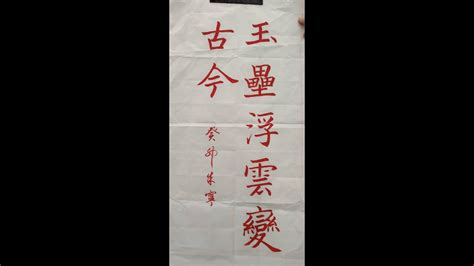 玉壘浮雲變
古今
癸卯朱寧